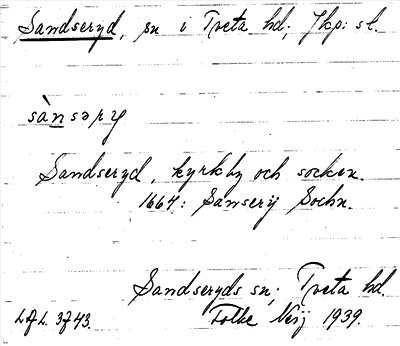 Sandseryd, sn i Tveta hd; Jkp: s l.
sànsəry
Sandseryd, kyrkby och socken.
1664: Sanserÿ Sochn.
Sandseryds sn; Tveta hd.
Folke Neij 1939.